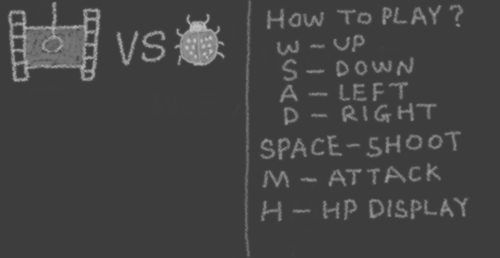 VS
HOW TO PLAY?
W - UP
S - DOWN
A - LEFT
D - RIGHT
SPACE-SHOOT
M - ATTACK
H - HP DISPLAY